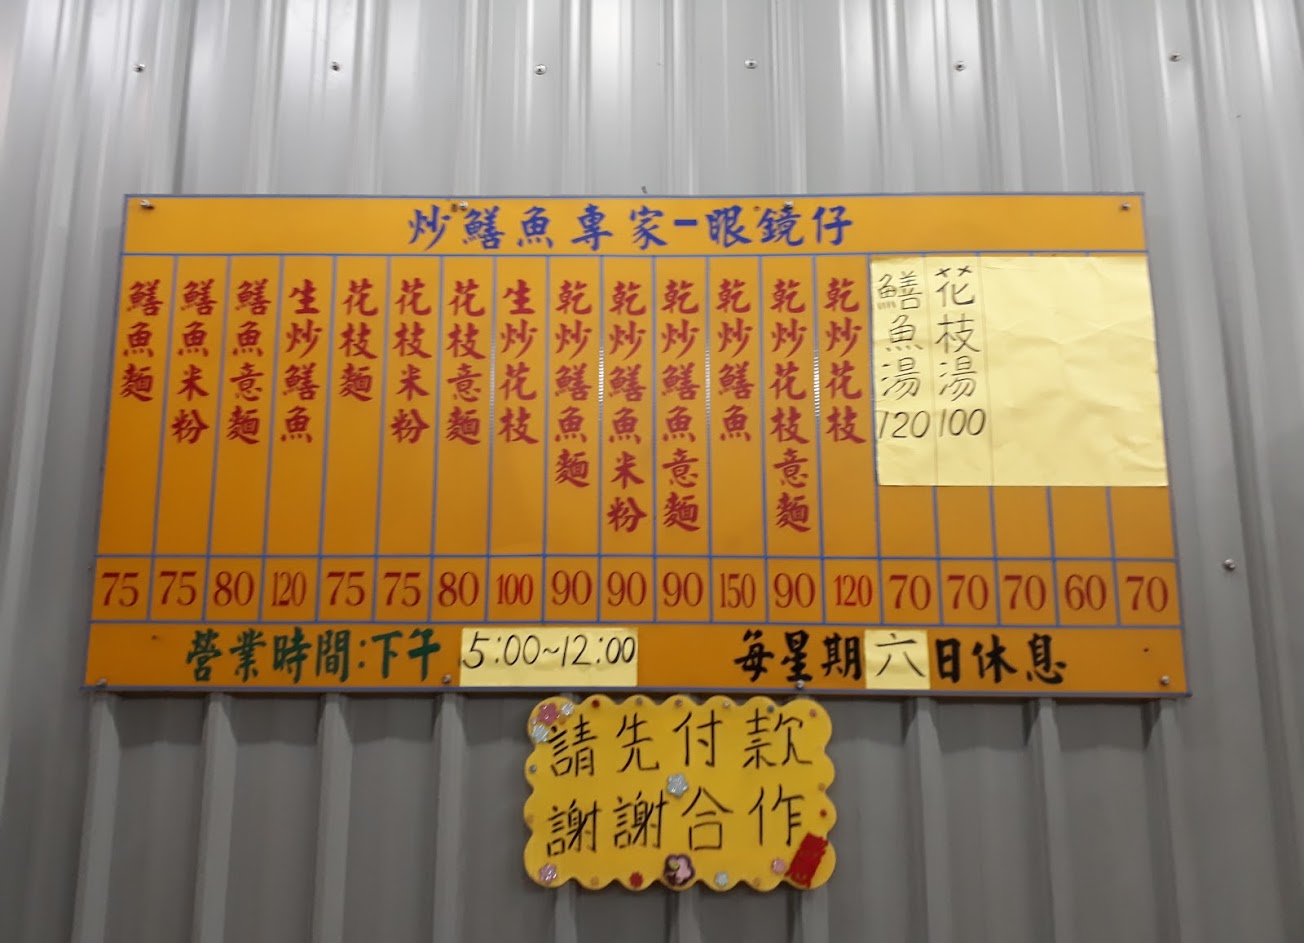 炒鱔魚專家-眼鏡仔
鱔魚麵
鱔魚米粉
鱔魚意麵
生炒鱔魚
花枝麵
花枝米粉
花枝意麵
生炒花枝
乾炒鱔魚麵
乾炒鱔魚米粉
乾炒鱔魚意麵
乾炒鱔魚
乾炒花枝意麵
乾炒花枝
鱔魚湯120
花枝湯100
75 75 80 120 75 75 80 100 90 90 90 150 90 120 70 70 70 60 70
營業時間:下午5:00~12:00 每星期六日休息
請先付款
謝謝合作